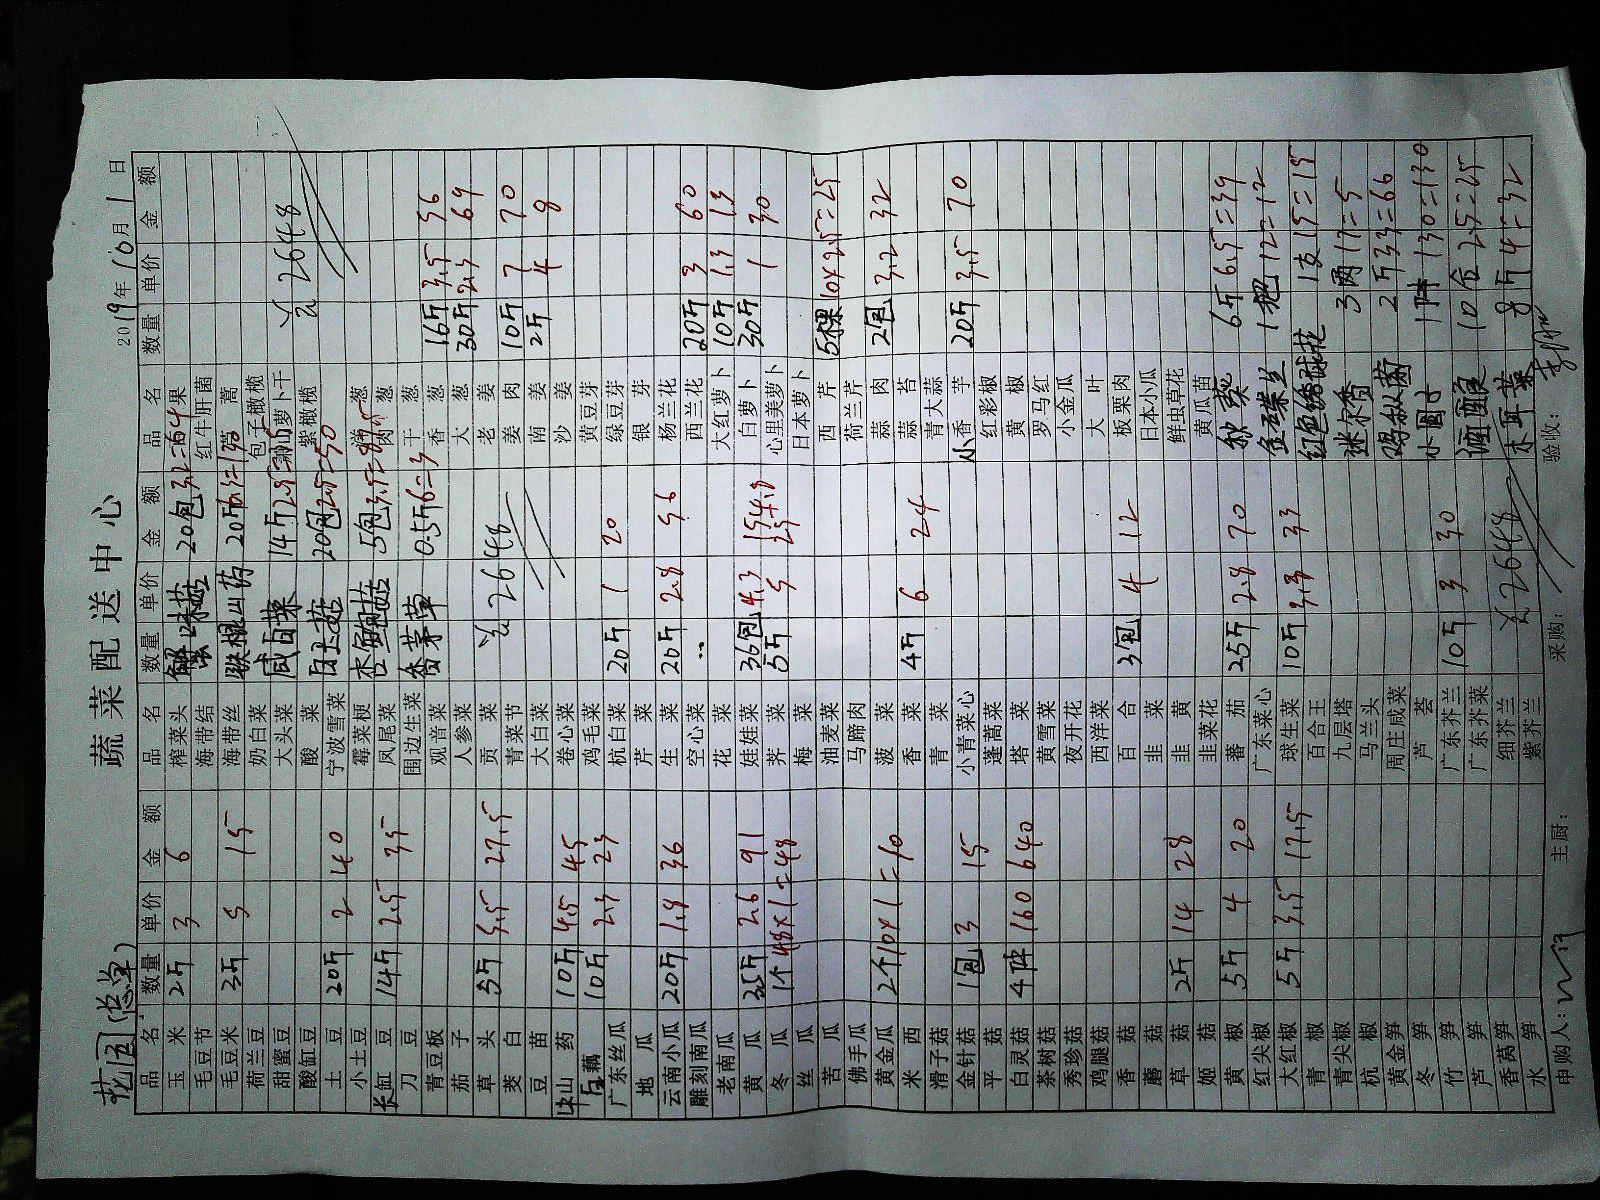 蔬菜配送中心
花园(总单)
2019年10月1日
品名 数量 单价 金额 品名 数量 单价 金额 品名 数量 单价 金额
玉米 2斤 3 6 榨菜头
毛豆节 海带结 红牛肝菌
毛豆米 3斤 5 15 海带丝
荷兰豆 奶白菜
甜蜜豆 大头菜
酸缸豆 酸菜 紫橄榄
土豆 20斤 2 40 宁波雪菜
小土豆 霉菜梗
长缸豆 14斤 2.5 35 凤尾菜
刀豆 围边生菜 干葱
青豆板 观音菜 香葱 16斤 3.5 56
茄子 人参菜 大葱 30斤 2.3 69
草头 5斤 5.5 27.5 贡菜 老姜
茭白 青菜节 姜肉 10斤 7 70
豆苗 大白菜 南姜 2斤 4 8
山药 10斤 4.5 45 卷心菜 沙姜
藕 10斤 2.3 23 鸡毛菜 黄豆芽
广东丝瓜 杭白菜 20斤 1 20 绿豆芽
地瓜 芹菜 银芽
云南小瓜 20斤 1.8 36 生菜 20斤 2.8 56 杨兰花
雕刻南瓜 空心菜 西兰花 20斤 3 60
老南瓜 花菜 大红萝卜 10斤 1.3 13
黄瓜 35斤 2.6 91 娃娃菜 36包 4.3 154.8 白萝卜 30斤 1 30
冬瓜 1个 48×1=48 荠菜 5斤 5 25 心里美萝卜
丝瓜 梅菜 日本萝卜
苦瓜 油麦菜 西芹 5棵 10×2.5=25
佛手瓜 马蹄肉 荷兰芹
黄金瓜 2个 10×1=10 菠菜 蒜肉 2包 3.2 32
米西 香菜 4斤 6 24 蒜苔
滑子菇 青菜 青大蒜
金针菇 1包 3 15 小青菜心 小香芋 20斤 3.5 70
平菇 蓬蒿菜 红彩椒
白灵菇 4 160 640 塔菜 黄椒
茶树菇 黄雪菜 罗马红
秀珍菇 夜开花 小金瓜
鸡腿菇 西洋菜 大叶
香菇 百合 3包 4 12 板栗肉
蘑菇 韭菜 日本小瓜
草菇 2斤 14 28 韭黄 鲜虫草花
姬菇 韭菜花 黄瓜苗
黄椒 5斤 4 20 蕃茄 25斤 2.8 70 秋葵 6斤 6.5=39
红尖椒 广东菜心
大红椒 5斤 3.5 17.5 球生菜 10斤 3.3 33 1把 12=12
青椒 百合王 红色绣球花 1支 15=15
青尖椒 九层塔
杭椒 马兰头 迷尔香 3两 17=5
黄金笋 周庄咸菜 2斤 33=66
冬笋 芦荟 130=130
竹笋 广东芥兰 10斤 3 30
芦笋 广东芥菜 10合 2.5=25
香莴笋 细芥兰
水笋 紫芥兰 木耳菜 8斤 4=32
20包 3.2=64
铁棍山药 20斤
咸白菜 14斤 2.5=35
20包 2.5=50
杏鲍菇 5包 3.5
香茅草 0.5斤 6=3
¥2648
¥2648
¥2648
申购人: 主厨: 采购: 验收: